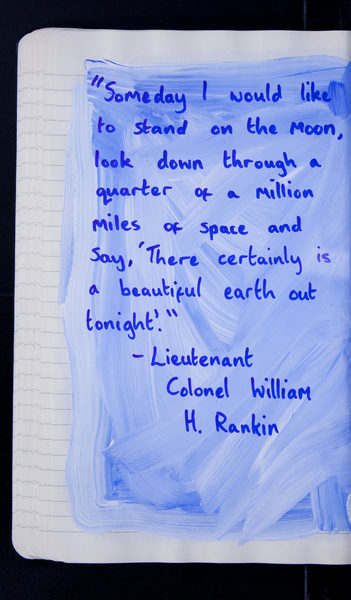 "Someday I would like
to stand on the Moon,
look down through a
quarter of a million
miles of space and
say, 'There certainly is
a beautiful earth out
tonight'."
- Lieutenant
Colonel William
H. Rankin